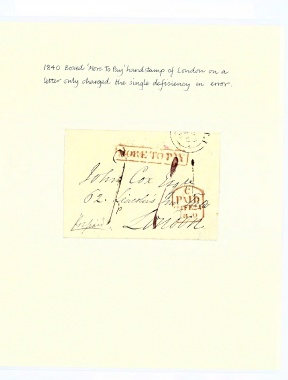 1840 Boxed 'More To Pay' handstamp of London on a
letter only charged the single deficiency in error.
MORE TO PAY
John Cox Esqre
62. Lincoln's Inn
PAID
London